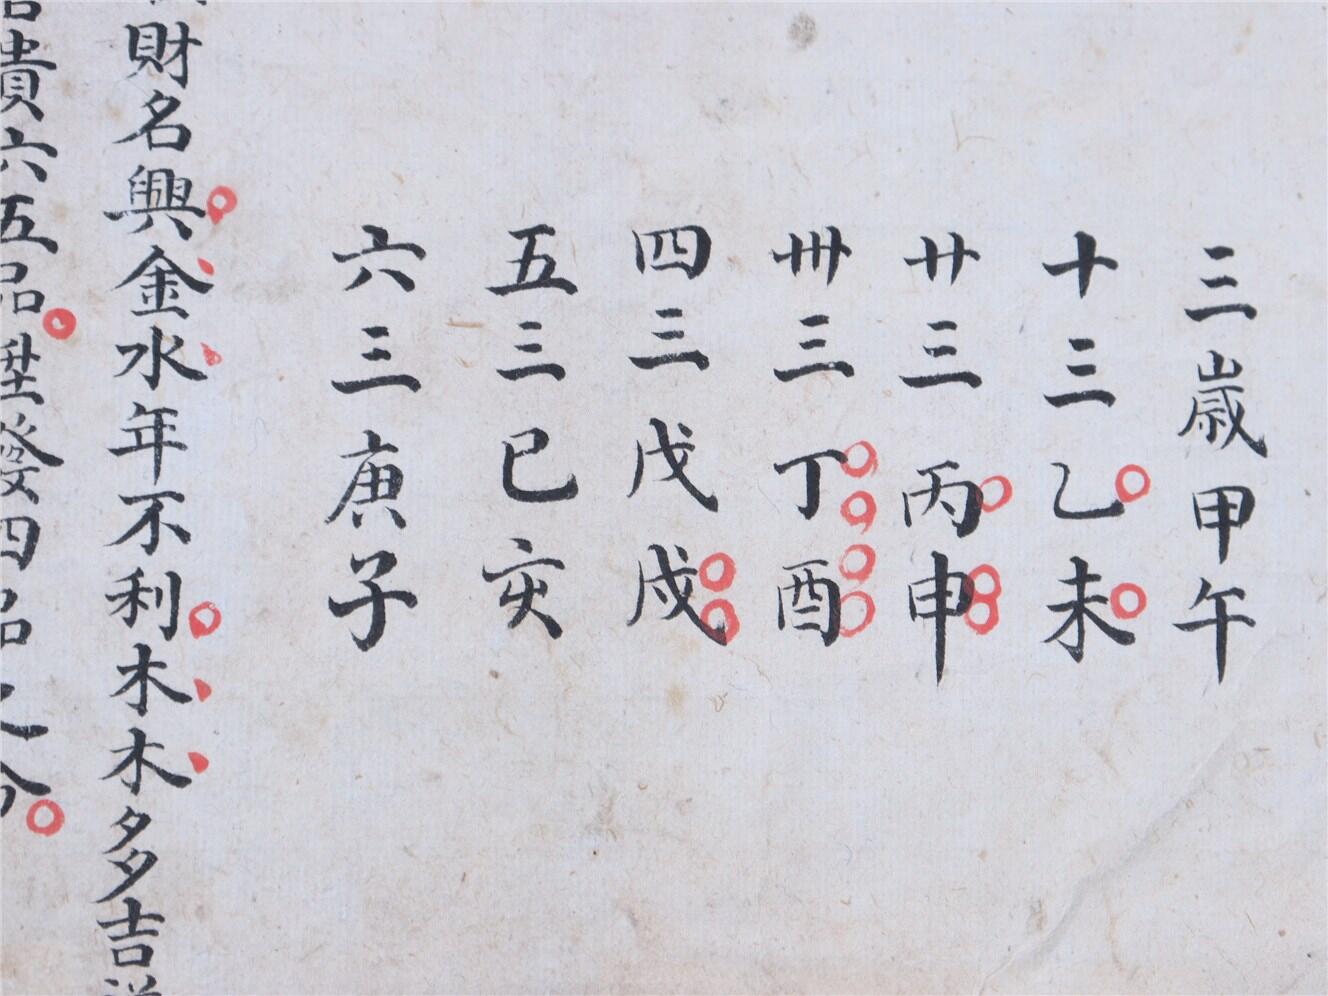 三歲甲午
十三乙未
廿三丙申
卅三丁酉
四三戊戌
五三已亥
六三庚子
財名興金水年不利木木多吉
貴六五品陞發四品之分